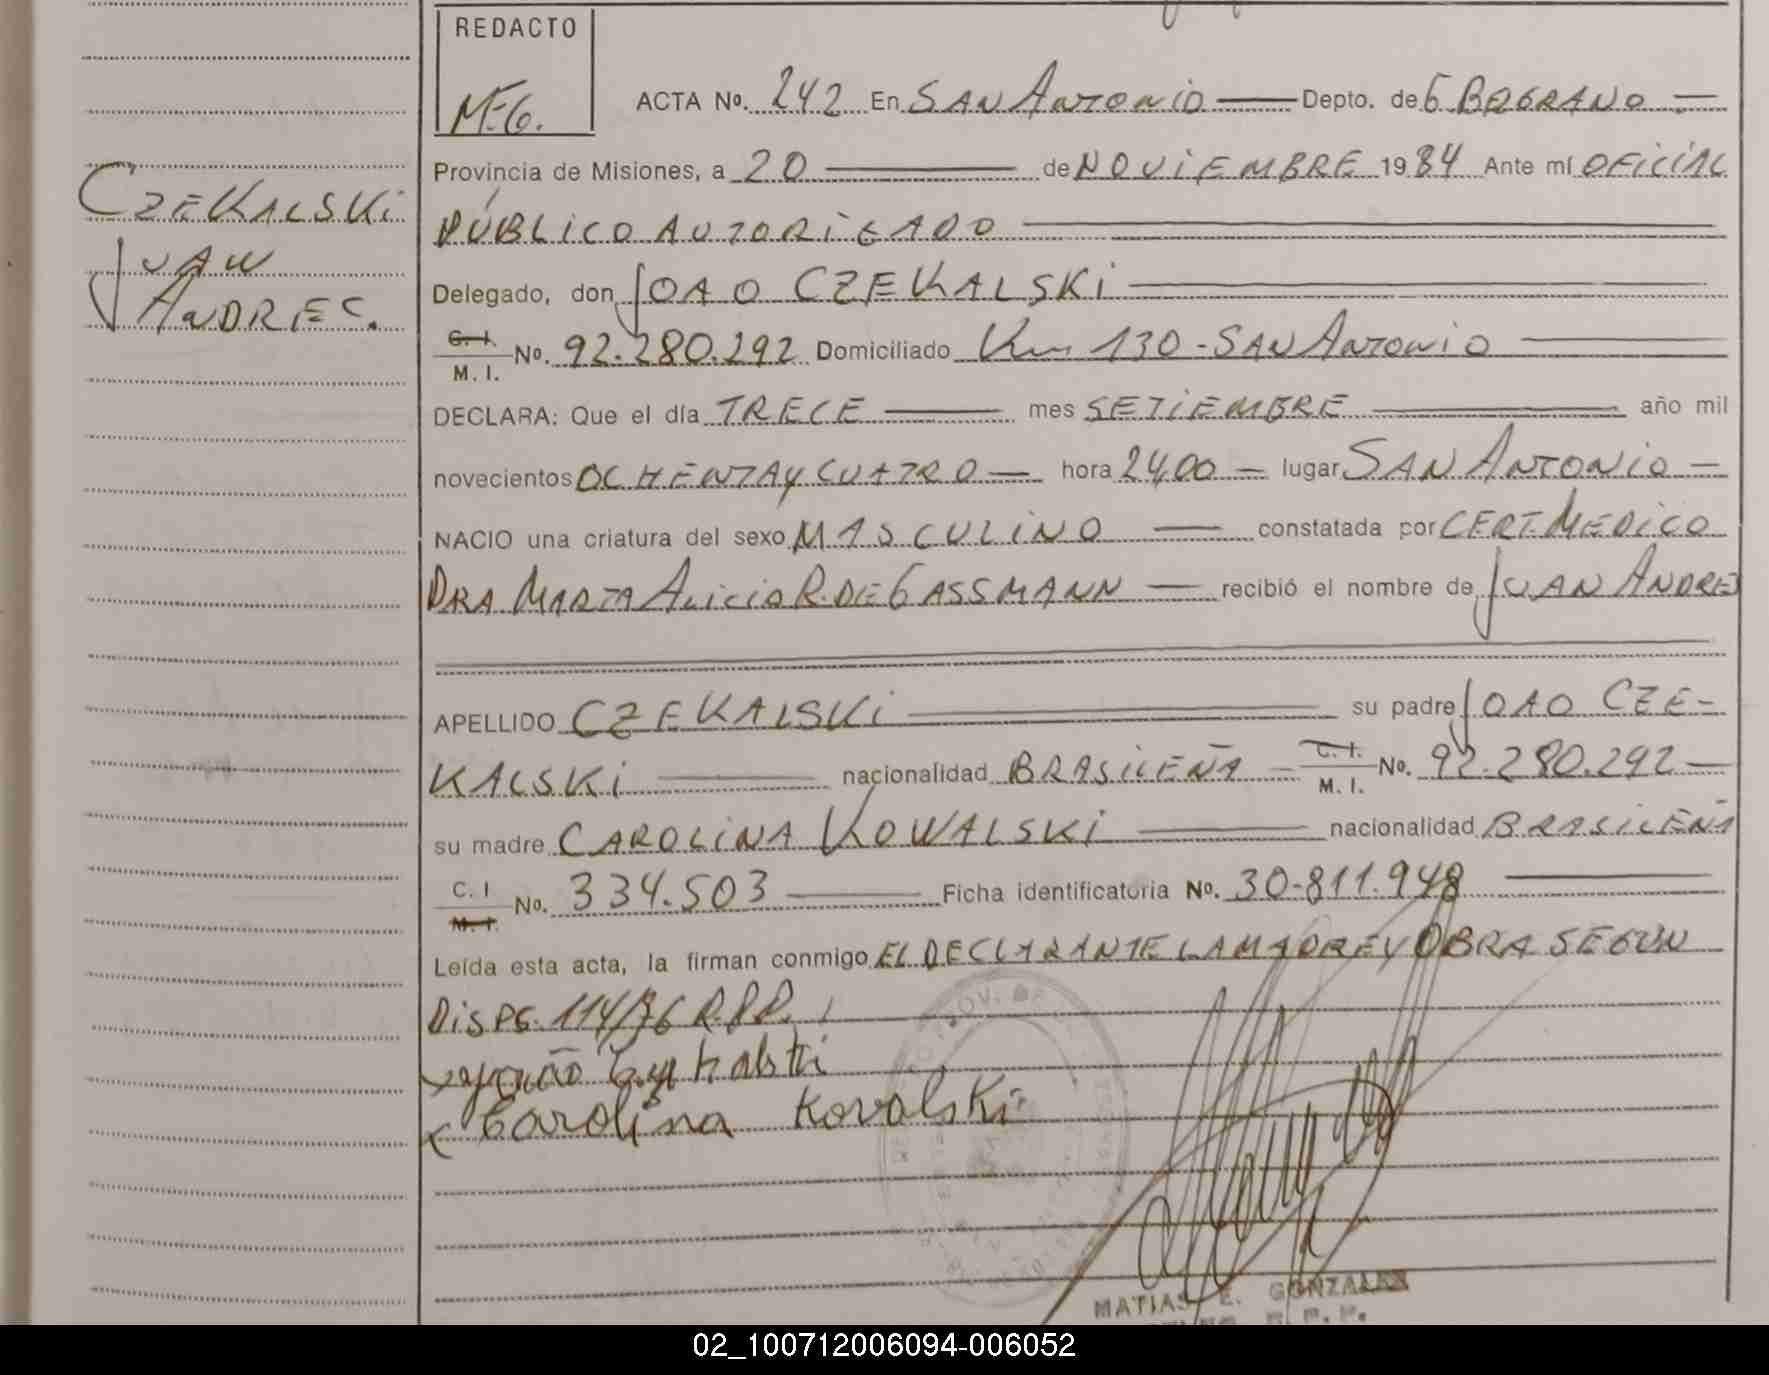 REDACTO
M.G.
ACTA No. 242 En SAN ANTONIO Depto. de G BELGRANO
Provincia de Misiones, a 20 de NOVIEMBRE 1984 Ante mí OFICIAL
PÚBLICO AUTORIZADO
CZEKALSKI
JUAN
ANDRES.
Delegado, don JOAO CZEKALSKI
C. I.
M. I. No. 92.280.292 Domiciliado Km 130 - SAN ANTONIO
DECLARA: Que el día TRECE mes SETIEMBRE año mil
novecientos OCHENTA Y CUATRO hora 24,00 lugar SAN ANTONIO
NACIO una criatura del sexo MASCULINO constatada por CERT. MEDICO
DRA MARTA ALICIA R. DE GASSMANN recibió el nombre de JUAN ANDRES
APELLIDO CZEKALSKI su padre JOAO CZE-
KALSKI nacionalidad BRASILEÑA C. I.
M. I. No. 92.280.292
su madre CAROLINA KOWALSKI nacionalidad BRASILEÑA
C. I
M. I. No. 334.503 Ficha identificatoria No. 30.811.948
Leída esta acta, la firman conmigo EL DECLARANTE LA MADRE Y OBRA SEGUN
DISPG. 114/76 R.P.P.
Carolina Kovalski
MATIAS E. GONZALEZ
02_100712006094-006052